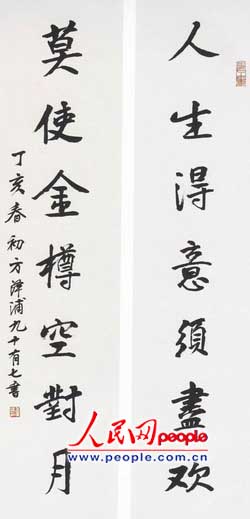 人生得意須盡欢
莫使金樽空對月
丁亥春初方泽浦九十有七書
人民网people
www.people.com.cn